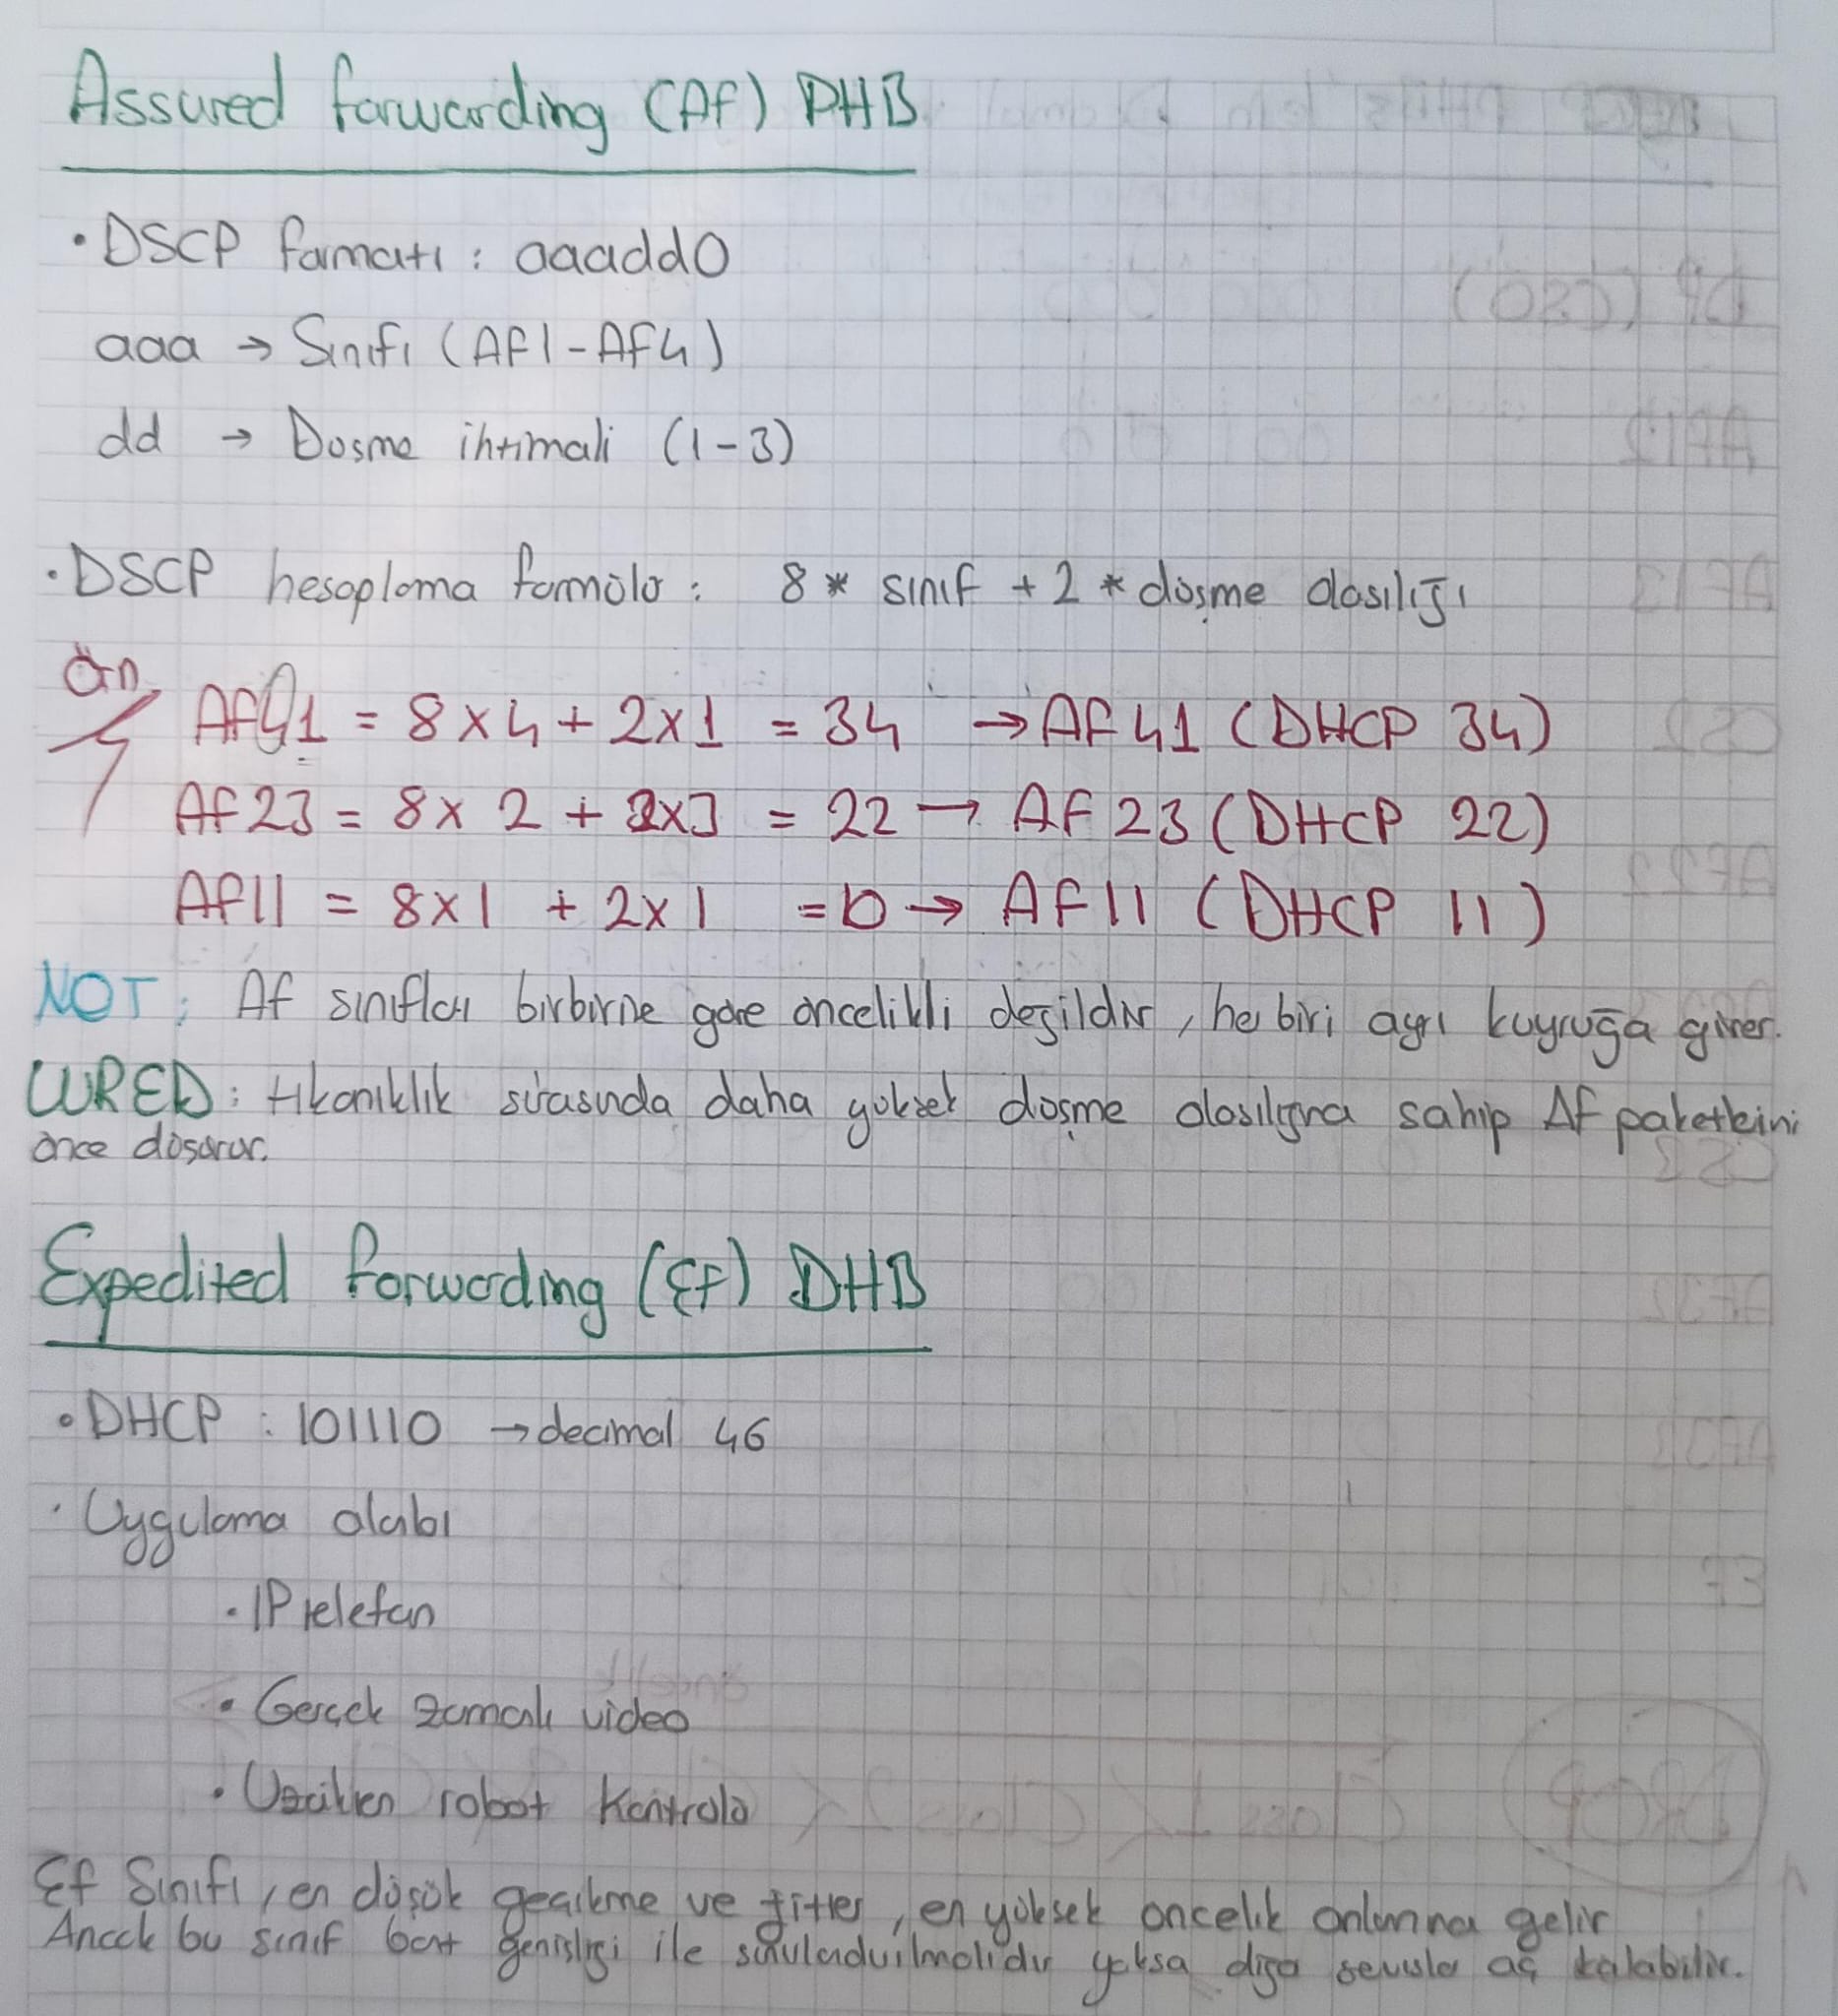 Assured forwarding (Af) PHB
• DSCP formatı : aaadd0
aaa → Sınıfı (AF1-AF4)
dd → Dusme ihtimali (1-3)
• DSCP hesaplama formülü : 8 * sınıf + 2 * düşme olasılığı
Örn
AF41 = 8x4 + 2x1 = 34 → AF41 (DHCP 34)
Af23 = 8x2 + 2x3 = 22 → AF23 (DHCP 22)
AF11 = 8x1 + 2x1 = 10 → AF11 (DHCP 11)
NOT : Af sınıfları birbirine göre öncelikli değildir, her biri ayrı kuyruğa girer.
WRED : tıkanıklık sırasında daha yüksek düşme olasılığına sahip Af paketlerini
önce düşürür.
Expedited forwarding (Ef) DHB
• DHCP : 101110 → decimal 46
• Uygulama alabı
• IP telefon
• Gerçek zamanlı video
• Uzaktan robot kontrolü
Ef Sınıfı, en düşük gecikme ve jitter, en yüksek öncelik anlamına gelir
Ancak bu sınıf bant genişliği ile sınırlandırılmalıdır yoksa diğer servisler aç kalabilir.